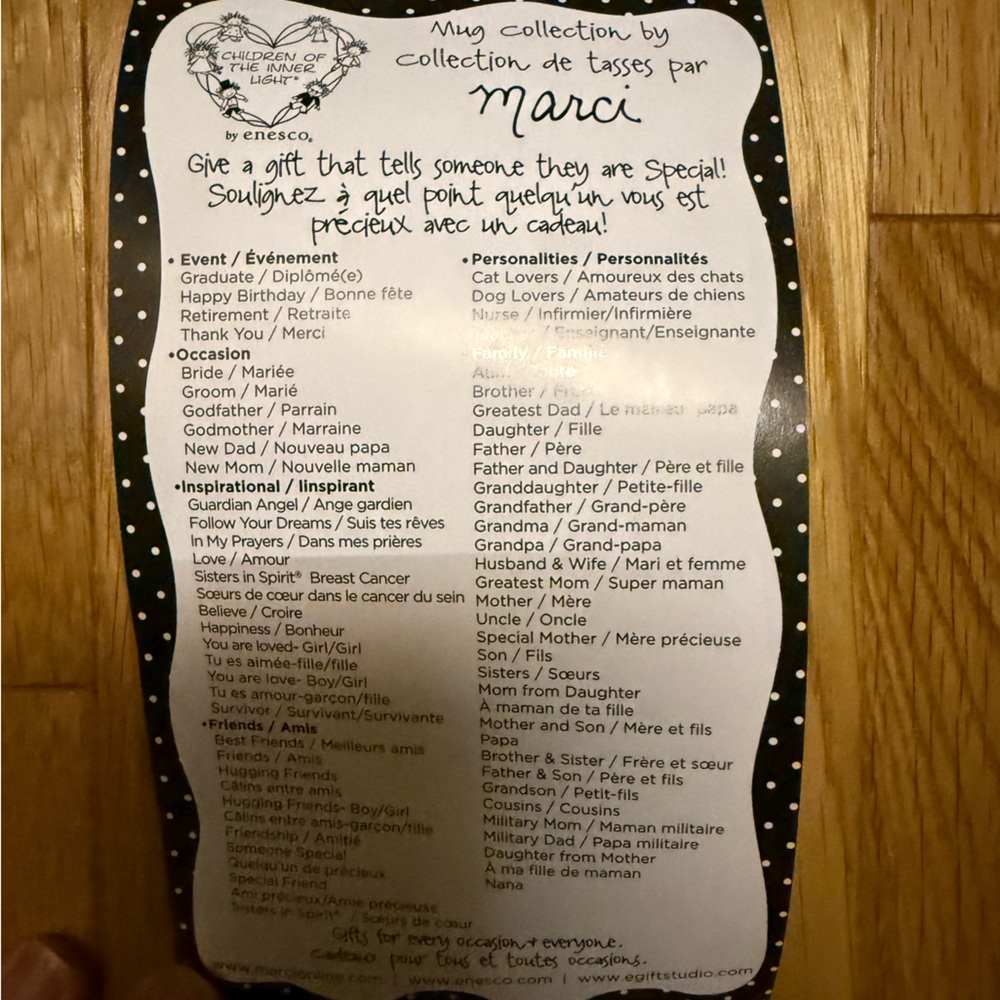 CHILDREN OF
THE INNER
LIGHT®
by enesco®
Mug collection by
collection de tasses par
Marci
Give a gift that tells someone they are Special!
Soulignez à quel point quelqu'un vous est
précieux avec un cadeau!
• Event / Événement
Graduate / Diplômé(e)
Happy Birthday / Bonne fête
Retirement / Retraite
Thank You / Merci
•Occasion
Bride / Mariée
Groom / Marié
Godfather / Parrain
Godmother / Marraine
New Dad / Nouveau papa
New Mom / Nouvelle maman
•Inspirational / Iinspirant
Guardian Angel / Ange gardien
Follow Your Dreams / Suis tes rêves
In My Prayers / Dans mes prières
Love / Amour
Sisters in Spirit® Breast Cancer
Sœurs de cœur dans le cancer du sein
Believe / Croire
Happiness / Bonheur
You are loved- Girl/Girl
Tu es aimée-fille/fille
You are love- Boy/Girl
Tu es amour-garçon/fille
Survivor / Survivant/Survivante
•Friends / Amis
Best Friends / Meilleurs amis
Friends / Amis
Hugging Friends
Câlins entre amis
Hugging Friends- Boy/Girl
Câlins entre amis-garçon/fille
Friendship / Amitié
Someone Special
Quelqu'un de précieux
Special Friend
Ami précieux/Amie précieuse
Sisters in Spirit® / Sœurs de cœur
• Personalities / Personnalités
Cat Lovers / Amoureux des chats
Dog Lovers / Amateurs de chiens
Nurse / Infirmier/Infirmière
/ Enseignant/Enseignante
• Family / Famille
/ Tante
Brother /
Greatest Dad / Le papa
Daughter / Fille
Father / Père
Father and Daughter / Père et fille
Granddaughter / Petite-fille
Grandfather / Grand-père
Grandma / Grand-maman
Grandpa / Grand-papa
Husband & Wife / Mari et femme
Greatest Mom / Super maman
Mother / Mère
Uncle / Oncle
Special Mother / Mère précieuse
Son / Fils
Sisters / Sœurs
Mom from Daughter
À maman de ta fille
Mother and Son / Mère et fils
Papa
Brother & Sister / Frère et sœur
Father & Son / Père et fils
Grandson / Petit-fils
Cousins / Cousins
Military Mom / Maman militaire
Military Dad / Papa militaire
Daughter from Mother
À ma fille de maman
Nana
Gifts for every occasion + everyone.
Cadeaux pour tous et toutes occasions.
www.marcionline.com | www.enesco.com | www.egiftstudio.com